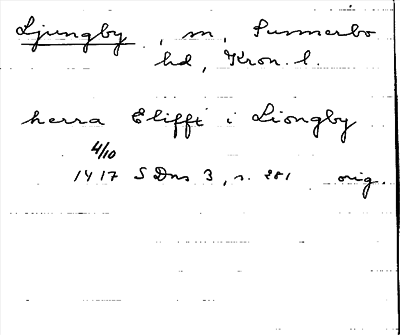 Ljungby, sn, Sunnerbo
hd, Kron. l.
herra Eliffi i Liongby
4/10
1417 SDns 3, s. 281 orig.